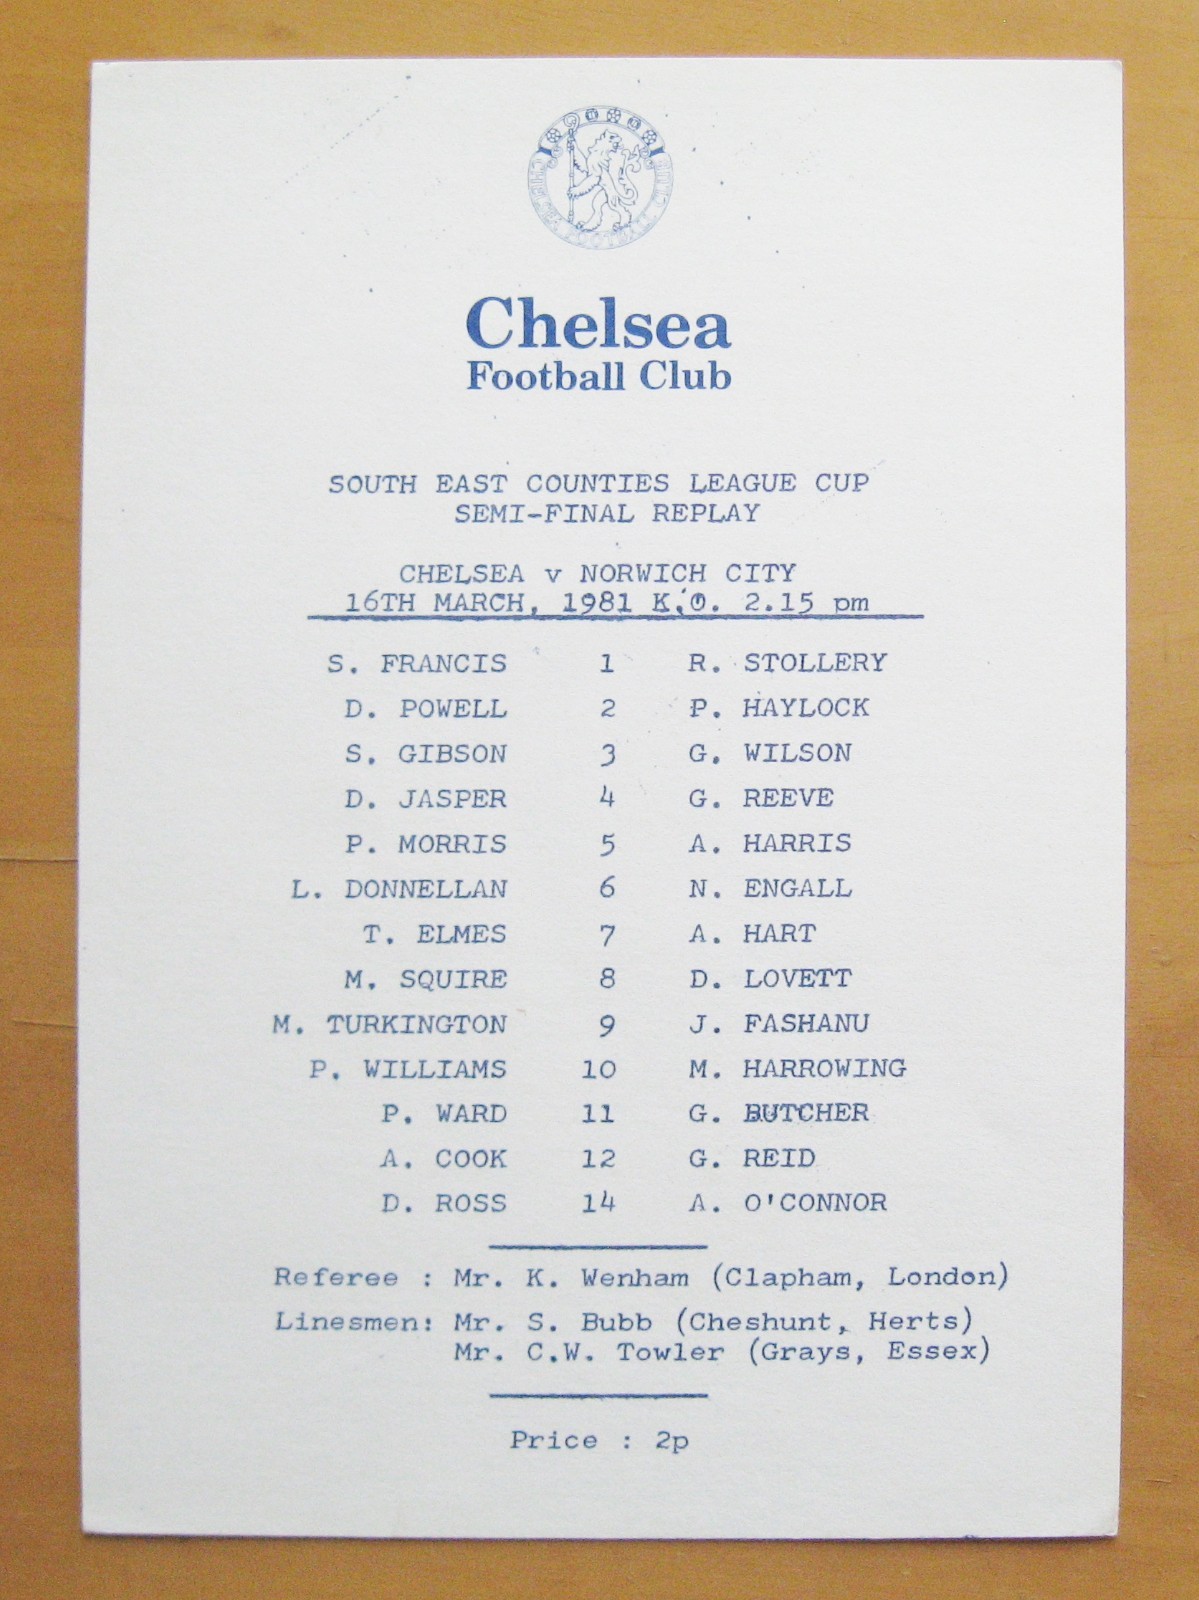 CHELSEA FOOTBALL CLUB
Chelsea
Football Club
SOUTH EAST COUNTIES LEAGUE CUP
SEMI-FINAL REPLAY
CHELSEA v NORWICH CITY
16TH MARCH, 1981 K.O. 2.15 pm
S. FRANCIS 1 R. STOLLERY
D. POWELL 2 P. HAYLOCK
S. GIBSON 3 G. WILSON
D. JASPER 4 G. REEVE
P. MORRIS 5 A. HARRIS
L. DONNELLAN 6 N. ENGALL
T. ELMES 7 A. HART
M. SQUIRE 8 D. LOVETT
M. TURKINGTON 9 J. FASHANU
P. WILLIAMS 10 M. HARROWING
P. WARD 11 G. BUTCHER
A. COOK 12 G. REID
D. ROSS 14 A. O'CONNOR
Referee : Mr. K. Wenham (Clapham, London)
Linesmen: Mr. S. Bubb (Cheshunt, Herts)
Mr. C.W. Towler (Grays, Essex)
Price : 2p